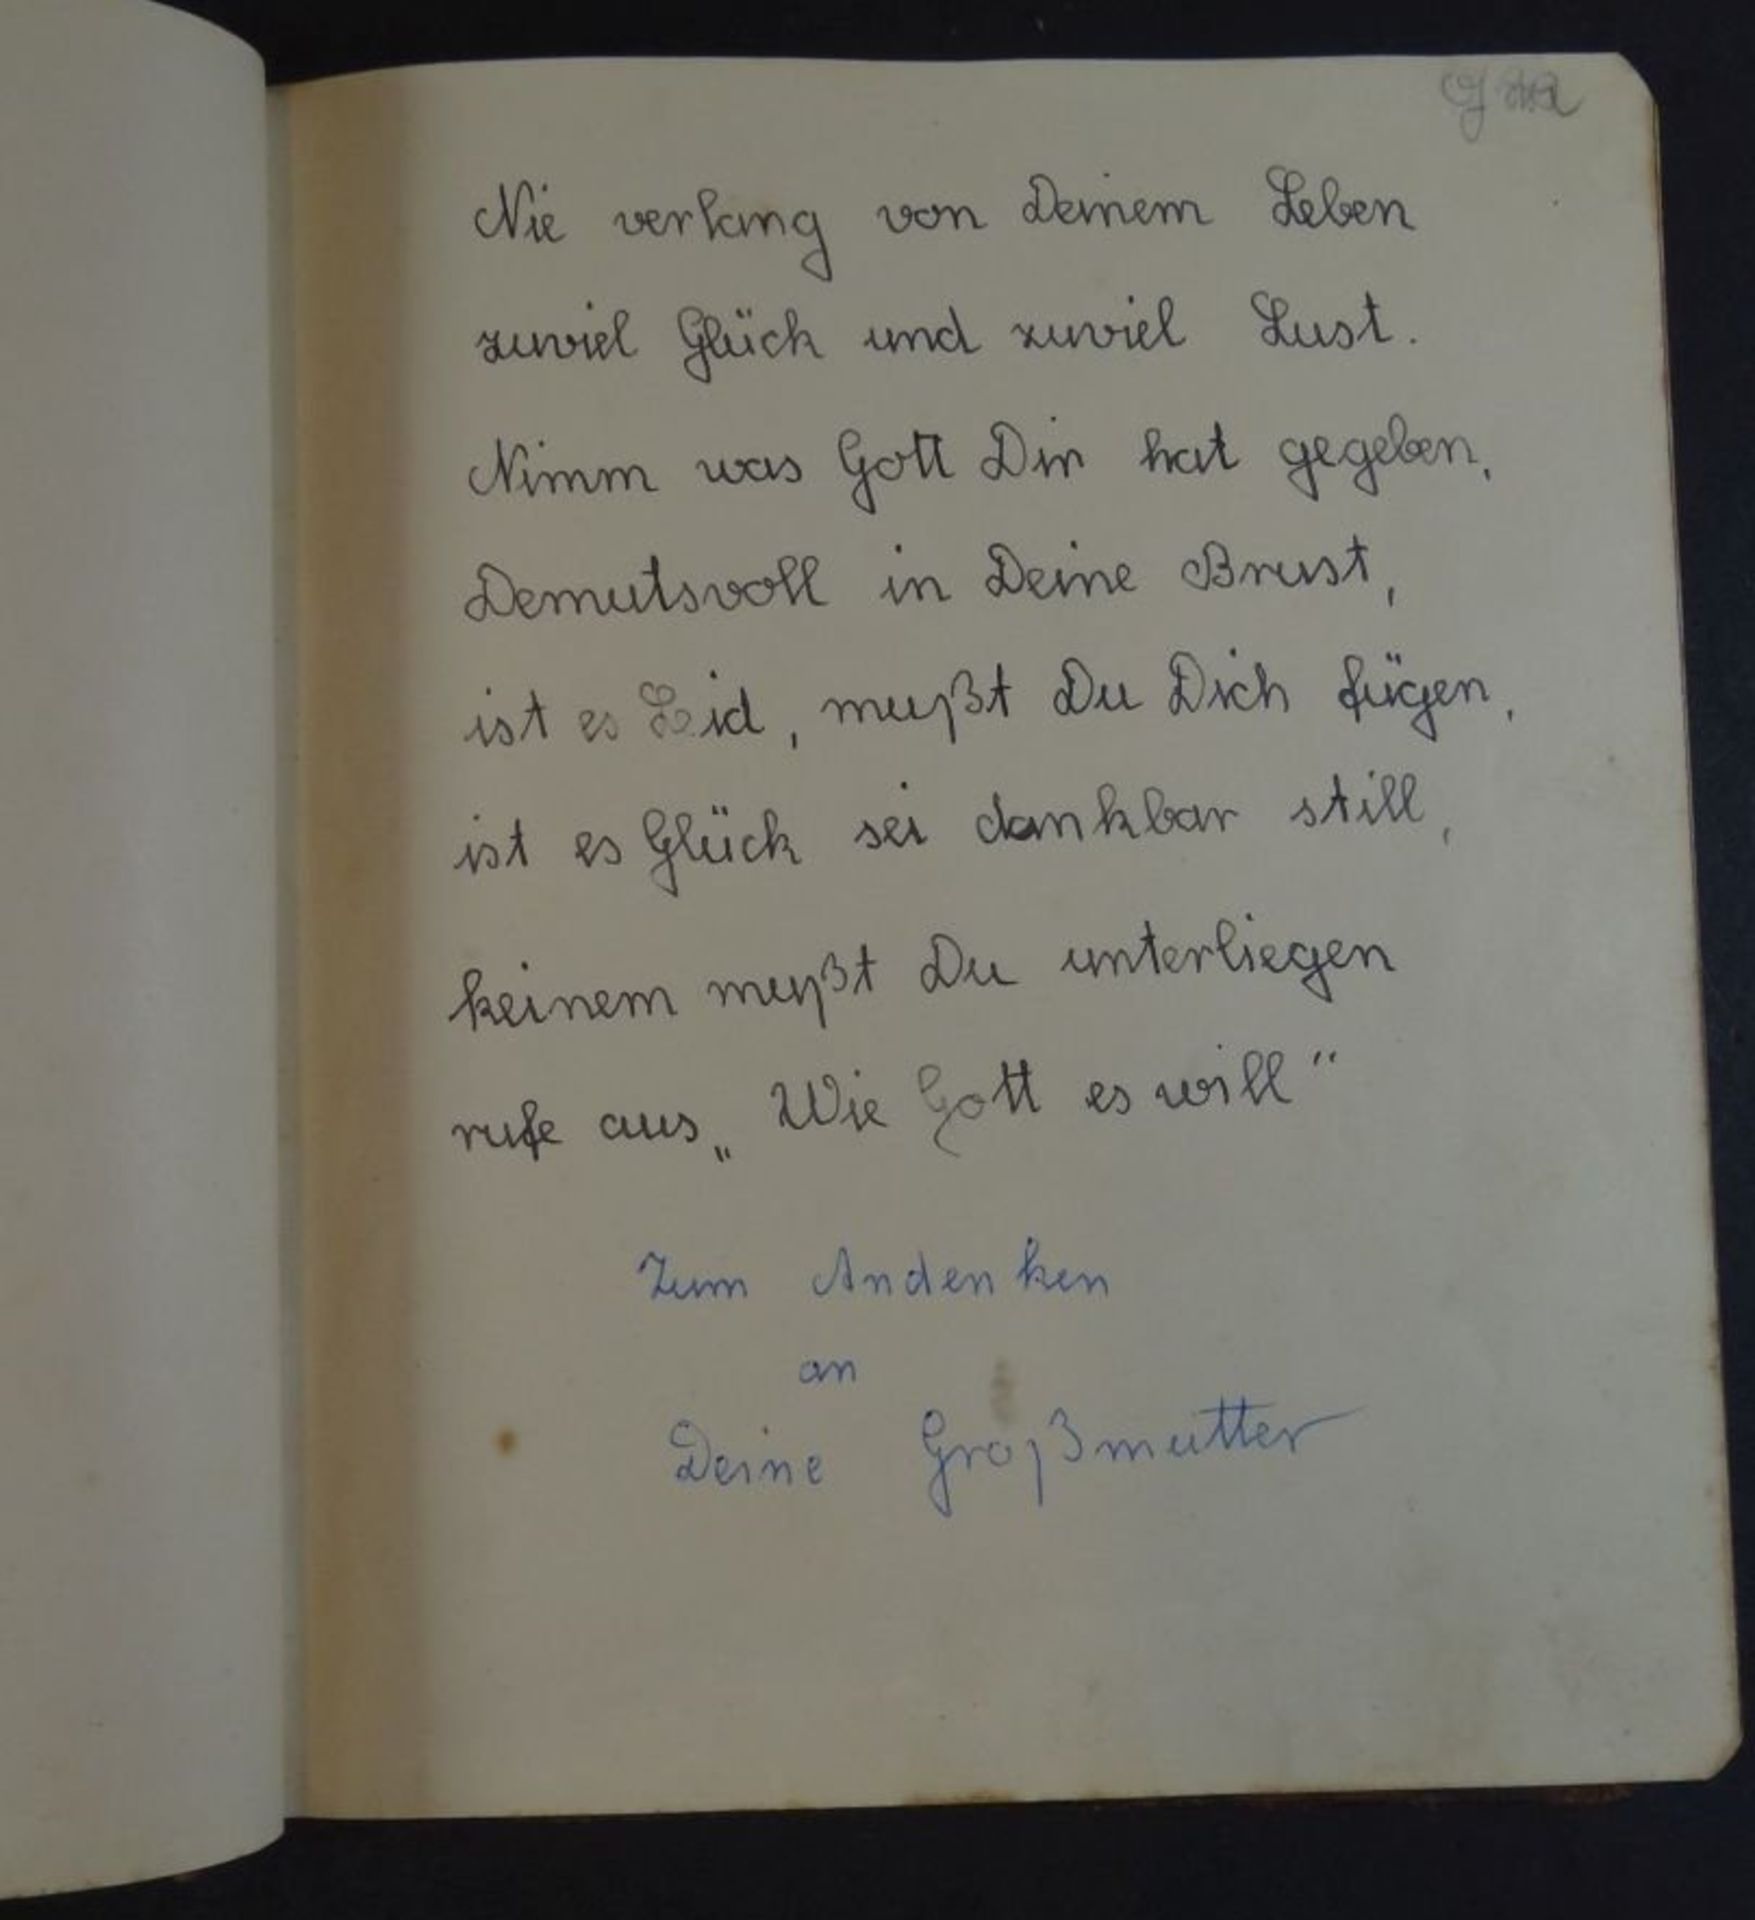 Nie verlang von Deinem Leben
zuviel Glück und zuviel Lust.
Nimm was Gott Dir hat gegeben,
Demutsvoll in Deine Brust,
ist es Leid, mußt Du Dich fügen,
ist es Glück sei dankbar still,
keinem mußt Du unterliegen
rufe aus „Wie Gott es will"
Zum Andenken
an
Deine Großmutter